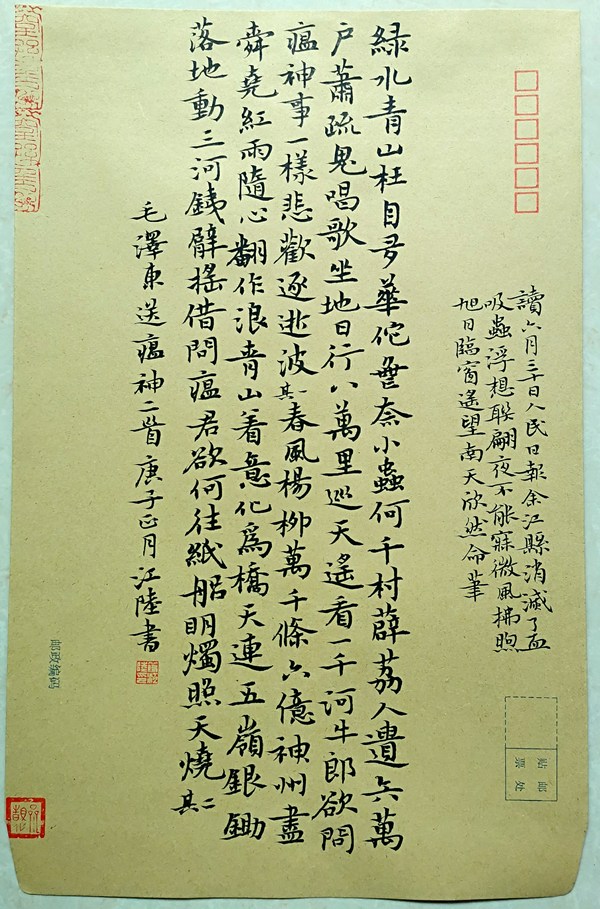 讀六月三十日人民日報余江縣消滅了血
吸蟲浮想聯翩夜不能寐微風拂煦
旭日臨窗遙望南天欣然命筆
綠水青山枉自多華佗無奈小蟲何千村薜荔人遺矢萬
户蕭疏鬼唱歌坐地日行八萬里巡天遙看一千河牛郎欲問
瘟神事一樣悲歡逐逝波其一春風楊柳萬千條六億神州盡
舜堯紅雨隨心翻作浪青山着意化為橋天連五嶺銀鋤
落地動三河鐵臂搖借問瘟君欲何往紙船明燭照天燒其二
毛澤東送瘟神二首庚子正月江陸書
贴邮
票处
邮政编码